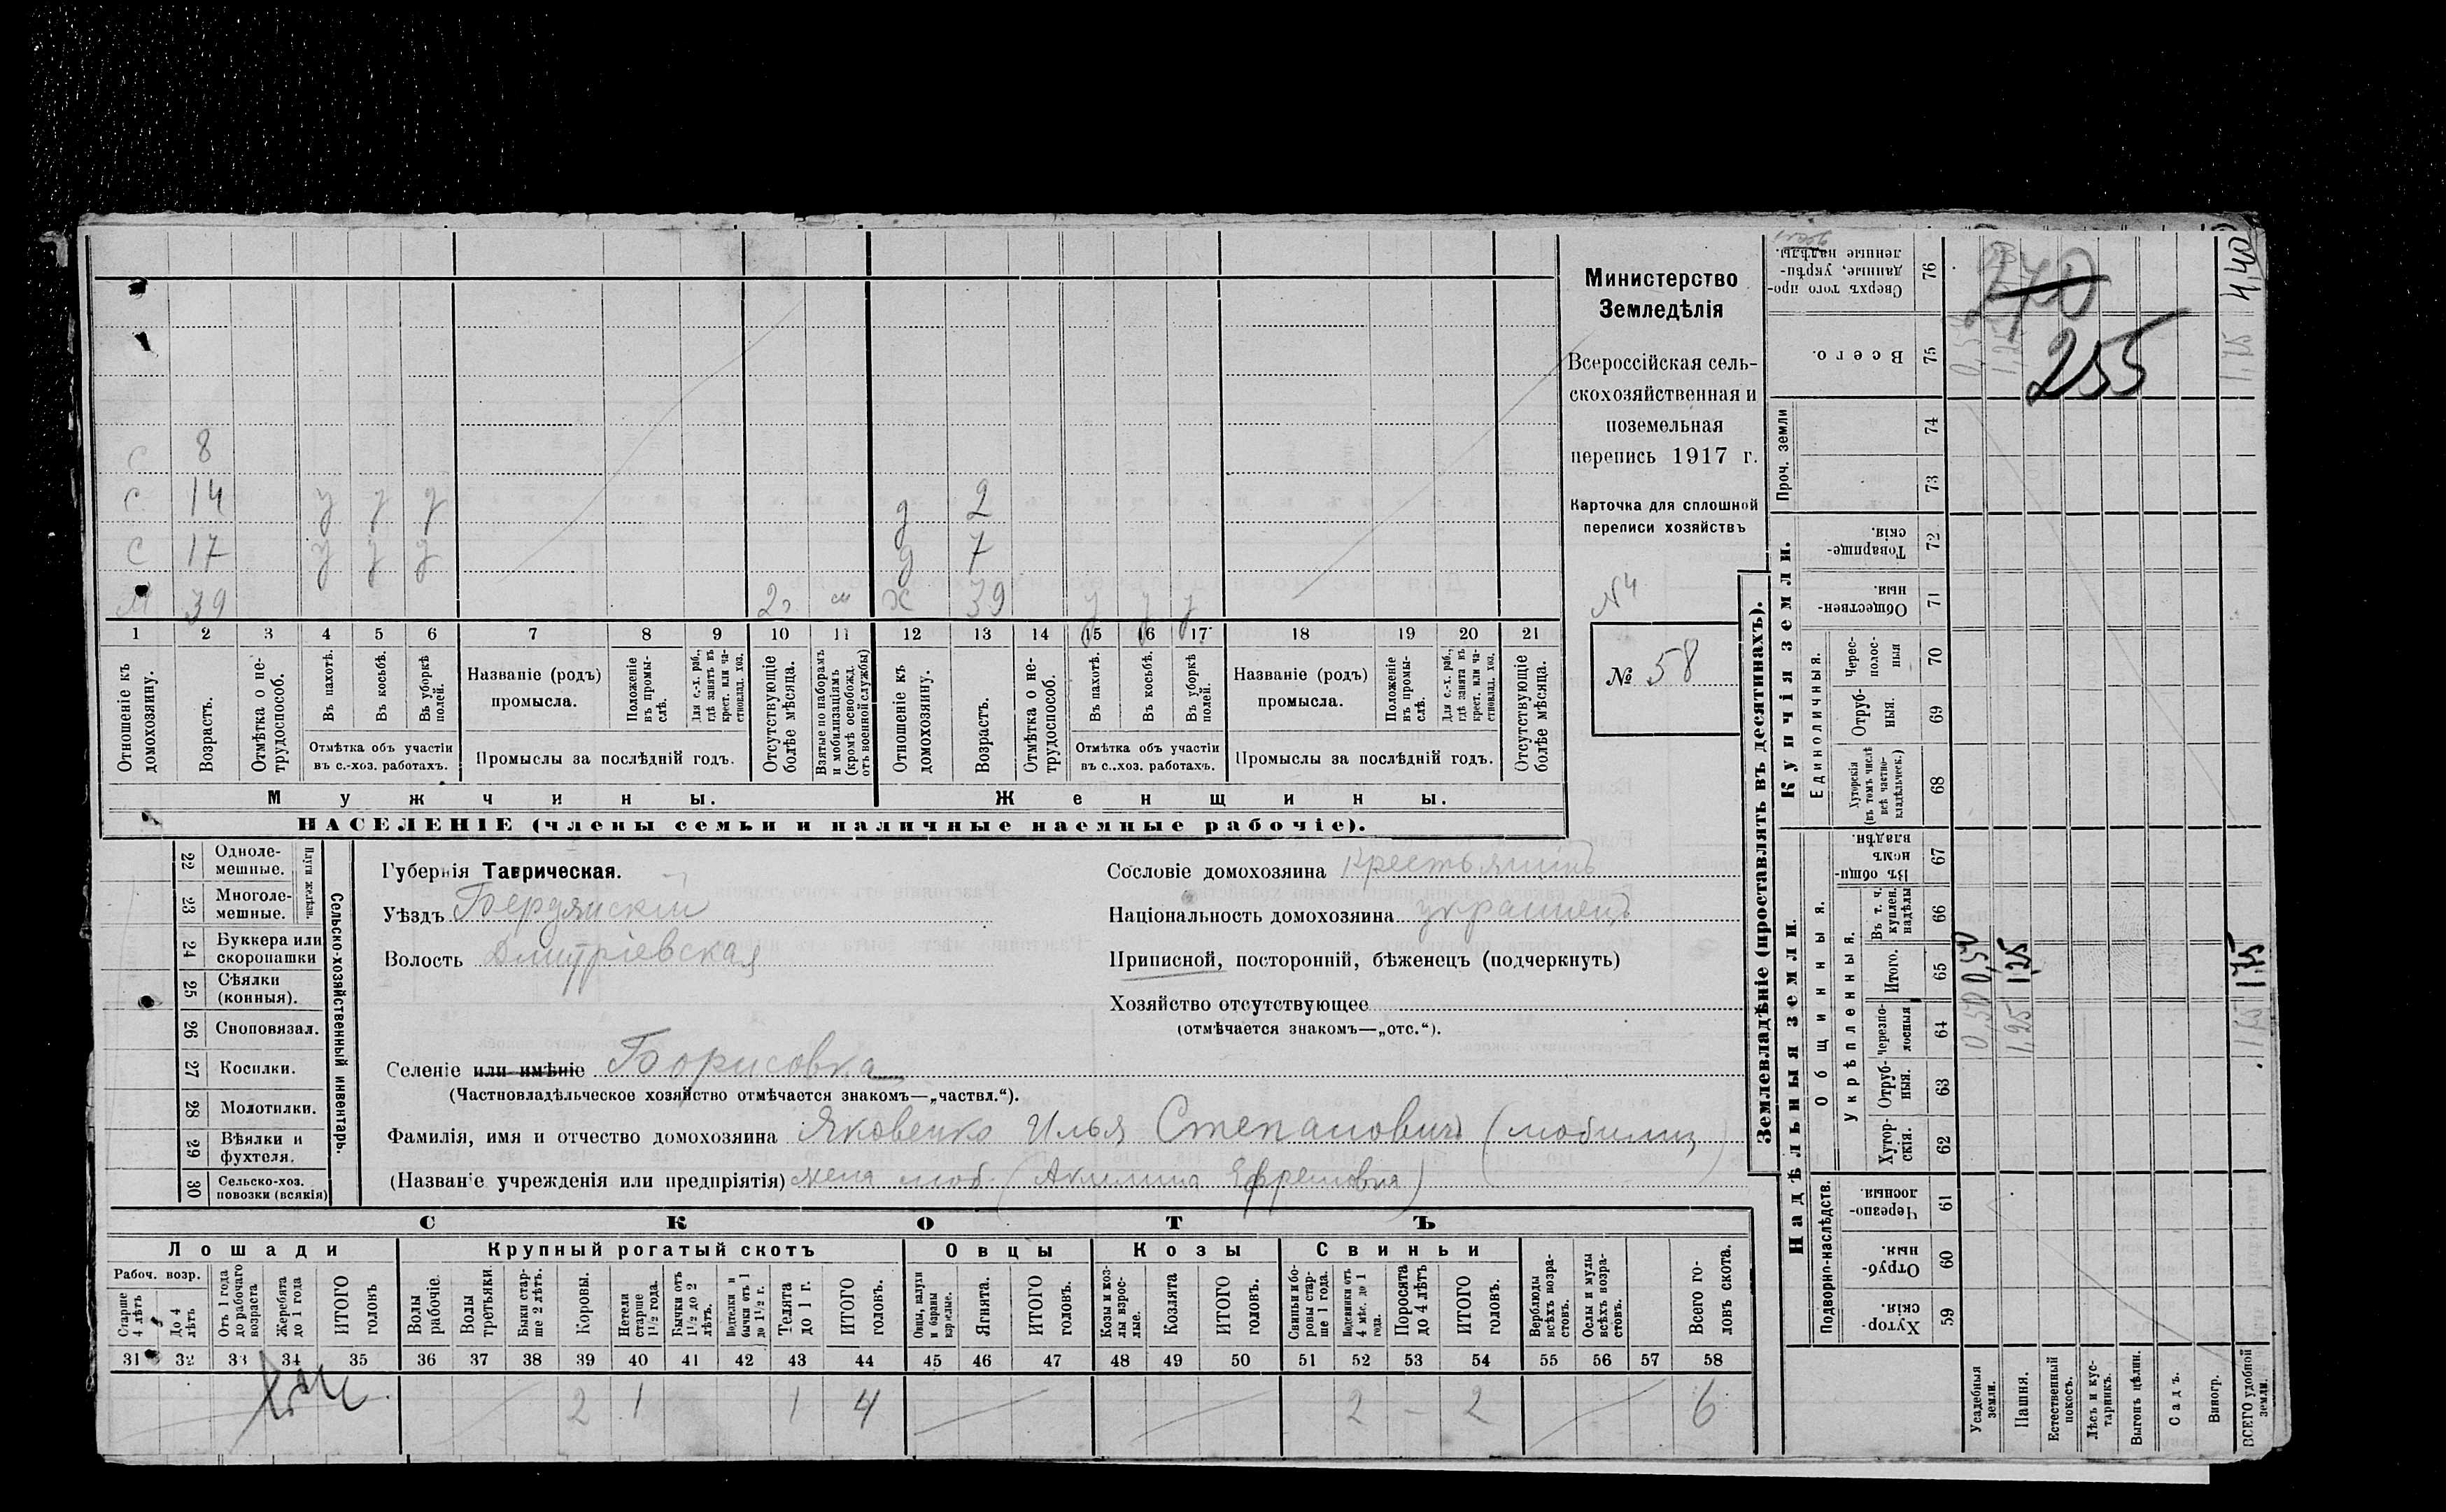 Министерство
Земледѣлія
Всероссійская сель-
скохозяйственная и
поземельная
перепись 1917 г.
Карточка для сплошной
переписи хозяйствъ
№ 4
№ 58
С 8
С 14 у у у д 2
С 17 у у у д 7
М 39 м Ж 39 у у у
1 2 3 4 5 6 7 8 9 10 11 12 13 14 15 16 17 18 19 20 21
Отношеніе къ домохозяину.
Возрастъ.
Отмѣтка о не-трудоспособ.
Въ пахотѣ.
Въ косьбѣ.
Въ уборкѣ полей.
Отмѣтка объ участіи
въ с.-хоз. работахъ.
Названіе (родъ)
промысла.
Положеніе въ промы-слѣ.
Для с.-х. раб., гдѣ занятъ въ крест. или ча-стновлад. хоз.
Промыслы за послѣдній годъ.
Отсутствующіе болѣе мѣсяца.
Взятые по наборамъ и мобилизаціямъ (кромѣ освобожд. отъ военной службы)
Отношеніе къ домохозяину.
Возрастъ.
Отмѣтка о не-трудоспособ.
Въ пахотѣ.
Въ косьбѣ.
Въ уборкѣ полей.
Отмѣтка объ участіи
въ с.-хоз. работахъ.
Названіе (родъ)
промысла.
Положеніе въ промы-слѣ.
Для с.-х. раб., гдѣ занята въ крест. или ча-стновлад. хоз.
Промыслы за послѣдній годъ.
Отсутствующіе болѣе мѣсяца.
Мужчины. Женщины.
НАСЕЛЕНІЕ (члены семьи и наличные наемные рабочіе).
22 Одноле-мешные.
23 Многоле-мешные.
Плуги желѣзн.
24 Буккера или скоропашки
25 Сѣялки (конныя).
26 Сноповязал.
27 Косилки.
28 Молотилки.
29 Вѣялки и фухтеля.
30 Сельско-хоз. повозки (всякія)
Сельско-хозяйственный инвентарь.
Губернія Таврическая.
Уѣздъ Бердянскій
Волость Дмитріевская
Селеніе или имѣніе Борисовка
(Частновладѣльческое хозяйство отмѣчается знакомъ—„частвл.“).
Фамилія, имя и отчество домохозяина Яковенко Илья Степановичъ (мобилиз)
(Названіе учрежденія или предпріятія) жена моб. (Акилина Ефремовна)
Сословіе домохозяина крестьянинъ
Національность домохозяина украинецъ
Приписной, посторонній, бѣженецъ (подчеркнуть)
Хозяйство отсутствующее
(отмѣчается знакомъ—„отс.“).
СКОТЪ
Лошади Крупный рогатый скотъ Овцы Козы Свиньи
Рабоч. возр.
Старше 4 лѣтъ
До 4 лѣтъ
Отъ 1 года до рабочаго возраста
Жеребята до 1 года
ИТОГО головъ
Волы рабочіе.
Волы третьяки.
Быки стар-ше 2 лѣтъ.
Коровы.
Нетели старше 1½ года.
Бычки отъ 1½ до 2 лѣтъ.
Подтелки и бычки отъ 1 до 1½ г.
Телята до 1 г.
ИТОГО головъ.
Овцы, валухи и бараны взрослые.
Ягнята.
ИТОГО головъ.
Козы и коз-лы взрос-лые.
Козлята
ИТОГО головъ.
Свиньи и бо-ровы стар-ше 1 года.
Подсвинки отъ 4 мѣс. до 1 года.
Поросята до 4 лѣтъ
ИТОГО головъ.
Верблюды всѣхъ возра-стовъ.
Ослы и мулы всѣхъ возра-стовъ.
Всего го-ловъ скота.
31 32 33 34 35 36 37 38 39 40 41 42 43 44 45 46 47 48 49 50 51 52 53 54 55 56 57 58
2 1 1 4 2 – 2 6
Землевладѣніе (проставлять въ десятинахъ).
Купчія земли.
Надѣльныя земли.
Проч. земли
Единоличныя.
Общинныя.
Укрѣпленныя.
Подворно-наслѣдств.
Сверхъ того про-данные, укрѣп-ленные надѣлы. 76
Всего. 75
74
73
Товарище-скія. 72
Обществен-ныя. 71
Черес-полос-ныя 70
Отруб-ныя. 69
Хуторскія (въ томъ числѣ всѣ частно-владѣльческ.) 68
Въ общи-номъ владѣн. 67
Въ т. ч. куплен. надѣлы 66
Итого. 65
Черезпо-лосныя 64
Отруб-ныя. 63
Хутор-скія. 62
Черезпо-лосныя. 61
Отруб-ныя. 60
Хутор-скія. 59
Усадебныя земли.
Пашня.
Естественный покосъ.
Лѣсъ и кус-тарникъ.
Выгонъ цѣлин.
Садъ.
Виногр.
ВСЕГО удобной земли.
270
255
0,50 0,50
1,25 1,25
1,75 1,75
1,75 4,40